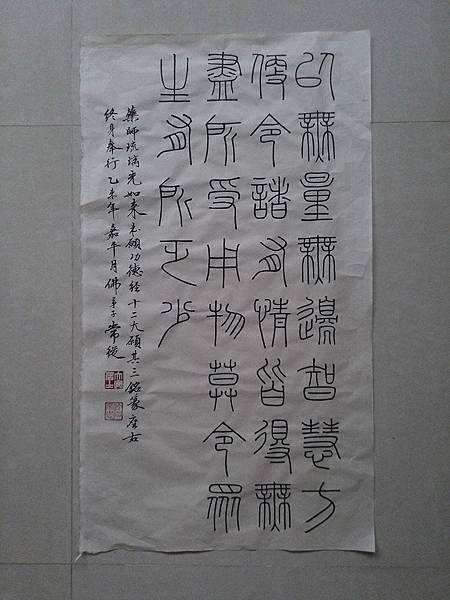 以無量無邊智慧方
便令諸有情皆得無
盡所受用物莫令眾
生有所乏少
藥師琉璃光如來本願功德經十二大願其三銘篆座右
終身奉行乙未年嘉平月佛弟子常